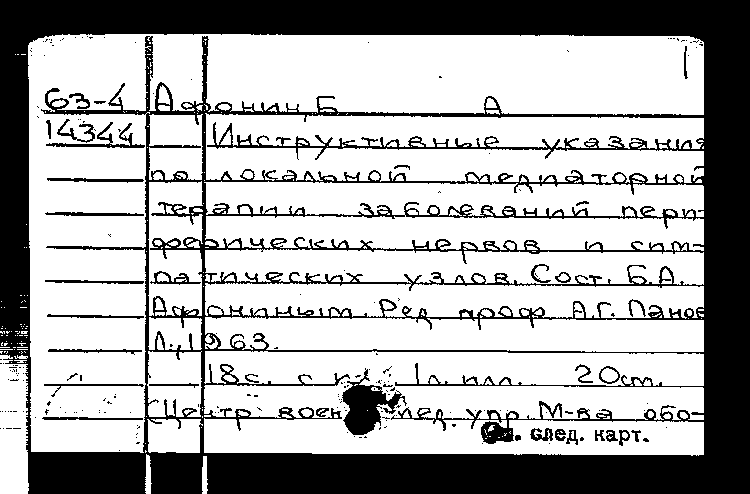 63-4 Афонин, Б А
14344 Инструктивные указания
по локальной медиаторной
терапии заболеваний пери-
ферических нервов и сим-
патических узлов. Сост. Б.А.
Афониным. Ред проф А.Г. Панов
Л., 1963.
18 с. с 1 л. илл. 20 см.
(Центр воен мед. упр. М-ва обо-
след. карт.